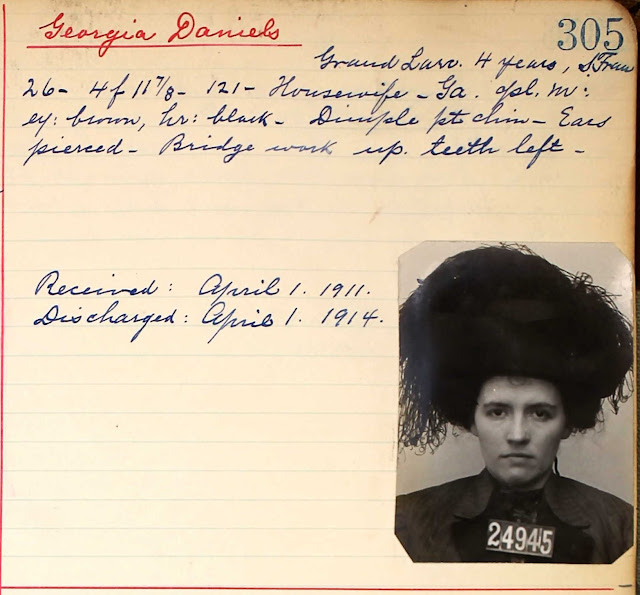 Georgia Daniels
305
Grand Larc. 4 years, S. Fran
26 - 4f 11 7/8 - 121 - Housewife - Ga. cpl. m:
ey: brown, hr: black - Dimple pt chin - Ears
pierced - Bridge work up. teeth left -
Received: April 1. 1911.
Discharged: April 1. 1914.
24945